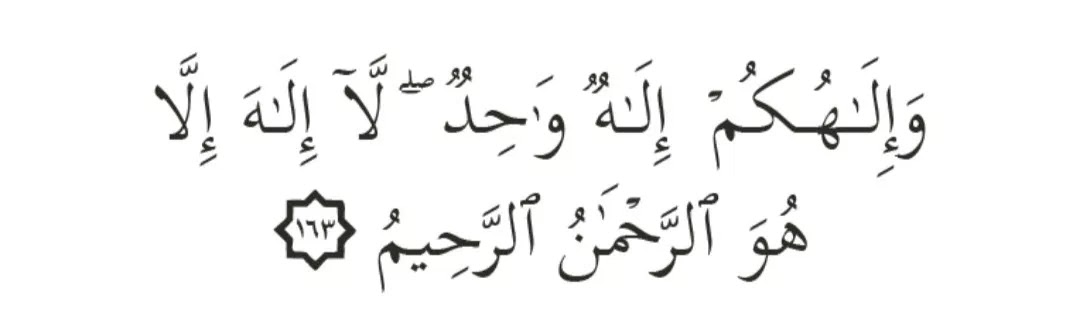 وَإِلَـٰهُكُمْ إِلَـٰهٌ وَٰحِدٌ ۖ لَّآ إِلَـٰهَ إِلَّا
هُوَ ٱلرَّحْمَـٰنُ ٱلرَّحِيمُ ١٦٣